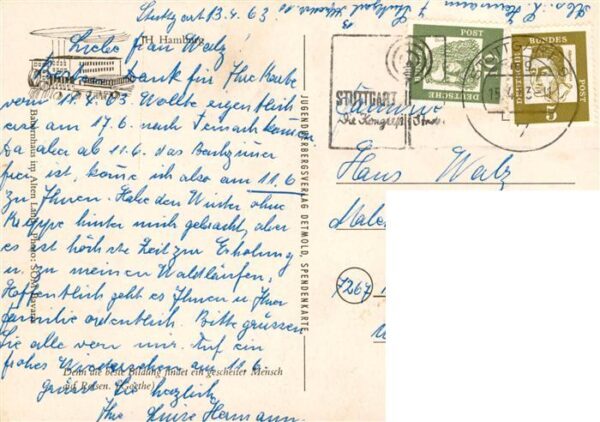 Stuttgart 13.4.63
JH Hamburg
Liebe Frau Walz!
Besten Dank für Ihre Karte
vom 11.4.63 Wollte eigentlich
erst am 17.6. nach Teinach kommen
Da aber ab 11.6. das Badzimmer
frei ist, komme ich also am 11.6
zu Ihnen. Habe den Winter ohne
Grippe hinter mich gebracht, aber
es ist höchste Zeit zur Erholung
u. zu meinen Waldläufen,
Hoffentlich geht es Ihnen u Ihrer
Familie ordentlich. Bitte grüssen
Sie alle von mir. Auf ein
frohes Wiedersehen am 11.6.
grüsst Sie herzlich
Ihre Luise Hermann.
Denn die beste Bildung findet ein gescheiter Mensch
auf Reisen. (Goethe)
Bauernhaus im Alten Land
JUGENDHERBERGSVERLAG DETMOLD, SPENDENKARTE
STUTTGART
Die Kongreß
DEUTSCHE
BUNDES
POST
10
DEUTSCHE
BUNDES
POST
5
Hans Walz
7267